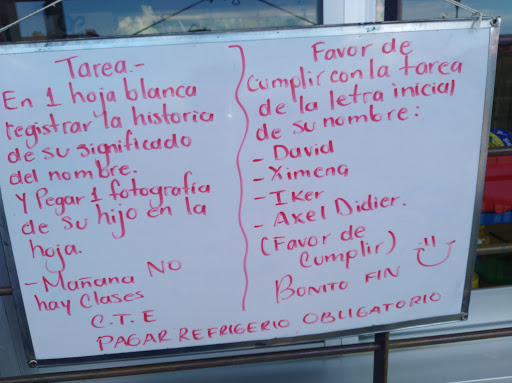 Tarea.-
En 1 hoja blanca
registrar la historia
de su significado
del nombre.
Y Pegar 1 fotografía
de su hijo en la
hoja.
- Mañana NO
hay Clases
C.T.E
Favor de
Cumplir con la tarea
de la letra inicial
de su nombre:
- David
- Ximena
- Iker
- Axel Didier.
(Favor de
Cumplir)
BONITO FIN
PAGAR REFRIGERIO OBLIGATORIO